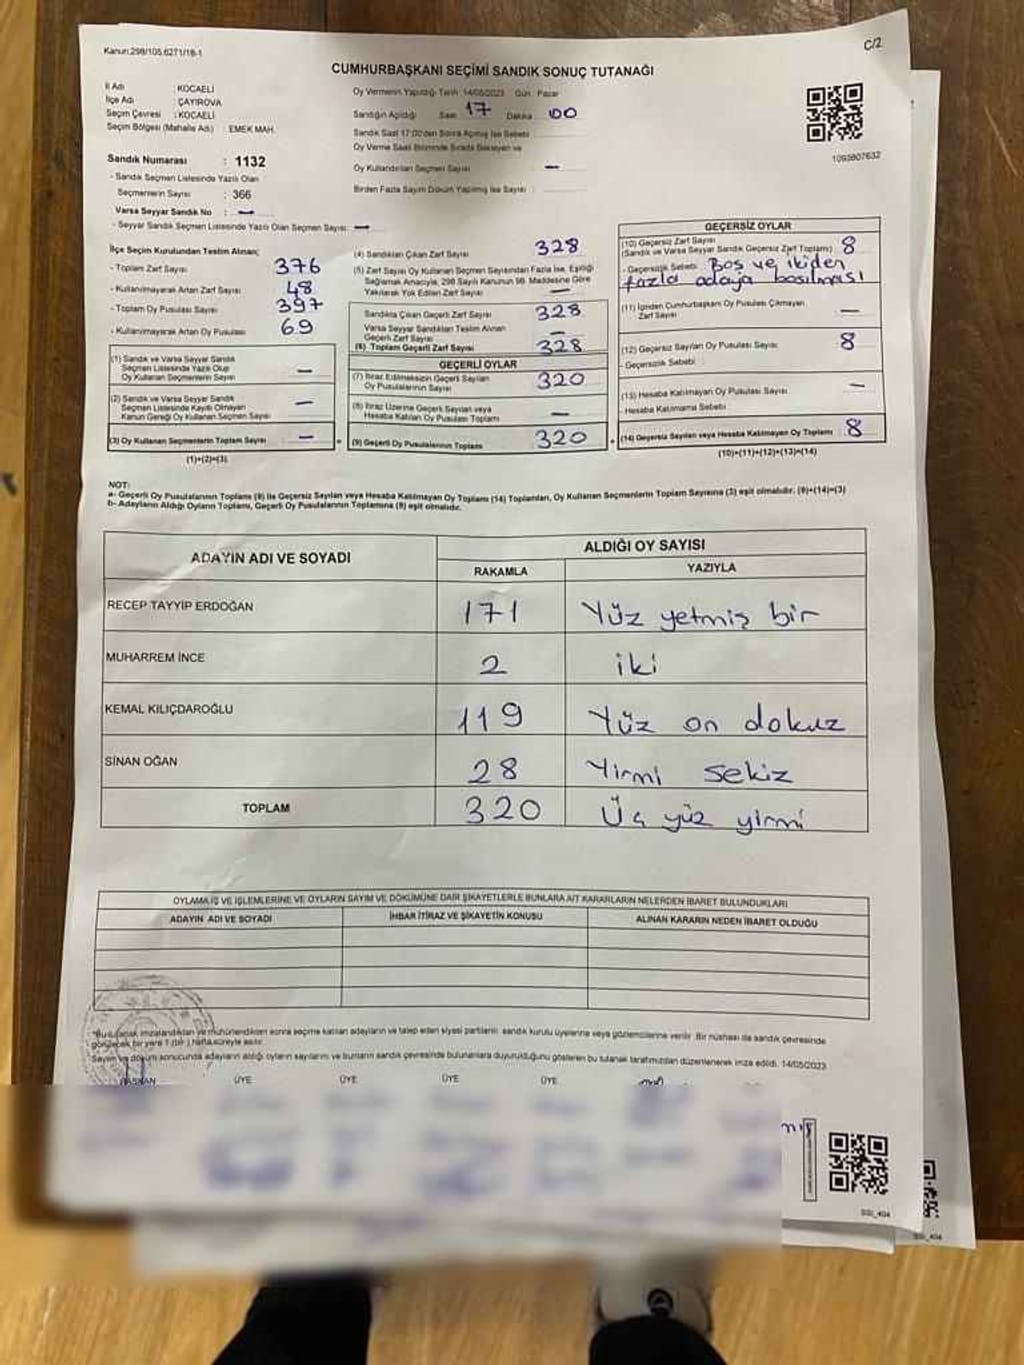 Kanun:298/105.6271/18-1
C/2
CUMHURBAŞKANI SEÇİMİ SANDIK SONUÇ TUTANAĞI
İl Adı : KOCAELİ
İlçe Adı : ÇAYIROVA
Seçim Çevresi : KOCAELİ
Seçim Bölgesi (Mahalle Adı) : EMEK MAH.
Sandık Numarası : 1132
- Sandık Seçmen Listesinde Yazılı Olan
Seçmenlerin Sayısı : 366
Varsa Seyyar Sandık No : —
- Seyyar Sandık Seçmen Listesinde Yazılı Olan Seçmen Sayısı: —
Oy Vermenin Yapıldığı Tarih :14/05/2023 Gün: Pazar
Sandığın Açıldığı Saat 17 Dakika 00
Sandık Saat 17:00'den Sonra Açılmış İse Sebebi
Oy Verme Saati Bitiminde Sırada Bekleyen ve
Oy Kullandırılan Seçmen Sayısı —
Birden Fazla Sayım Döküm Yapılmış İse Sayısı :
1093807632
İlçe Seçim Kurulundan Teslim Alınan;
- Toplam Zarf Sayısı 376
- Kullanılmayarak Artan Zarf Sayısı 48
- Toplam Oy Pusulası Sayısı 397
- Kullanılmayarak Artan Oy Pusulası 69
(1) Sandık ve Varsa Seyyar Sandık
Seçmen Listesinde Yazılı Olup
Oy Kullanan Seçmenlerin Sayısı —
(2) Sandık ve Varsa Seyyar Sandık
Seçmen Listesinde Kayıtlı Olmayan
Kanun Gereği Oy Kullanan Seçmen Sayısı —
(3) Oy Kullanan Seçmenlerin Toplam Sayısı —
(1)+(2)=(3)
(4) Sandıktan Çıkan Zarf Sayısı 328
(5) Zarf Sayısı Oy Kullanan Seçmen Sayısından Fazla İse, Eşitliği
Sağlamak Amacıyla, 298 Sayılı Kanunun 98. Maddesine Göre
Yakılarak Yok Edilen Zarf Sayısı —
Sandıkta Çıkan Geçerli Zarf Sayısı 328
Varsa Seyyar Sandıktan Teslim Alınan
Geçerli Zarf Sayısı —
(6) Toplam Geçerli Zarf Sayısı 328
GEÇERLİ OYLAR
(7) İtiraz Edilmeksizin Geçerli Sayılan
Oy Pusulalarının Sayısı 320
(8) İtiraz Üzerine Geçerli Sayılan veya
Hesaba Katılan Oy Pusulası Toplamı —
(9) Geçerli Oy Pusulalarının Toplamı 320
GEÇERSİZ OYLAR
(10) Geçersiz Zarf Sayısı
(Sandık ve Varsa Seyyar Sandık Geçersiz Zarf Toplamı) 8
- Geçersizlik Sebebi: Boş ve ikiden
fazla adaya basılması
(11) İçinden Cumhurbaşkanı Oy Pusulası Çıkmayan
Zarf Sayısı —
(12) Geçersiz Sayılan Oy Pusulası Sayısı 8
- Geçersizlik Sebebi
(13) Hesaba Katılmayan Oy Pusulası Sayısı —
- Hesaba Katılmama Sebebi
(14) Geçersiz Sayılan veya Hesaba Katılmayan Oy Toplamı 8
(10)+(11)+(12)+(13)=(14)
NOT:
a- Geçerli Oy Pusulalarının Toplamı (9) ile Geçersiz Sayılan veya Hesaba Katılmayan Oy Toplamı (14) Toplamları, Oy Kullanan Seçmenlerin Toplam Sayısına (3) eşit olmalıdır. (9)+(14)=(3)
b- Adayların Aldığı Oyların Toplamı, Geçerli Oy Pusulalarının Toplamına (9) eşit olmalıdır.
ADAYIN ADI VE SOYADI
ALDIĞI OY SAYISI
RAKAMLA YAZIYLA
RECEP TAYYİP ERDOĞAN 171 Yüz yetmiş bir
MUHARREM İNCE 2 iki
KEMAL KILIÇDAROĞLU 119 Yüz on dokuz
SİNAN OĞAN 28 Yirmi sekiz
TOPLAM 320 Üç yüz yirmi
OYLAMA İŞ VE İŞLEMLERİNE VE OYLARIN SAYIM VE DÖKÜMÜNE DAİR ŞİKAYETLERLE BUNLARA AİT KARARLARIN NELERDEN İBARET BULUNDUKLARI
ADAYIN ADI VE SOYADI İHBAR İTİRAZ VE ŞİKAYETİN KONUSU ALINAN KARARIN NEDEN İBARET OLDUĞU
*Bu tutanak imzalandıktan ve mühürlendikten sonra seçime katılan adayların ve talep eden siyasi partilerin sandık kurulu üyelerine veya gözlemcilerine verilir. Bir nüshası da sandık çevresinde
görülecek bir yere 1 (bir) hafta süreyle asılır.
Sayım ve döküm sonucunda adayların aldığı oyların sayılarını ve bunların sandık çevresinde bulunanlara duyurulduğunu gösteren bu tutanak tarafımızdan düzenlenerek imza edildi. 14/05/2023
BAŞKAN ÜYE ÜYE ÜYE ÜYE
SSI_404
SSI_404